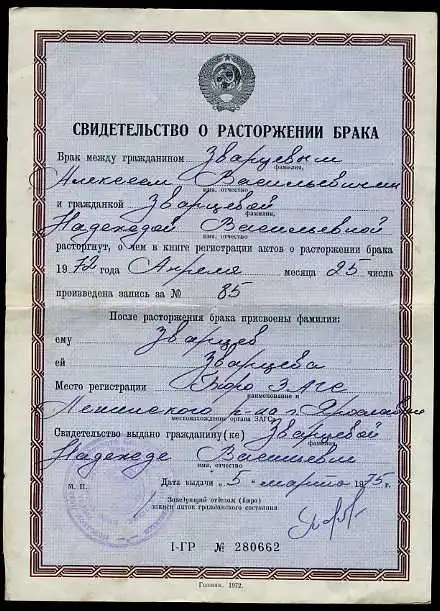 СВИДЕТЕЛЬСТВО О РАСТОРЖЕНИИ БРАКА
Брак между гражданином Зварцевым
фамилия,
Алексеем Васильевичем
имя, отчество
и гражданкой Зварцевой
фамилия,
Надеждой Васильевной
имя, отчество
расторгнут, о чем в книге регистрации актов о расторжении брака
1972 года Апреля месяца 25 числа
произведена запись за № 85
После расторжения брака присвоены фамилии:
ему Зварцев
ей Зварцева
Место регистрации Бюро ЗАГС
наименование и
Ленинского р-на г. Ярославля
местонахождение органа ЗАГСа
Свидетельство выдано гражданину(ке) Зварцевой
фамилия,
Надежде Васильевне
имя, отчество
М. П. Дата выдачи „5" марта 1975 г.
Заведующий отделом (бюро)
записи актов гражданского состояния
I-ГР № 280662
Гознак. 1972.